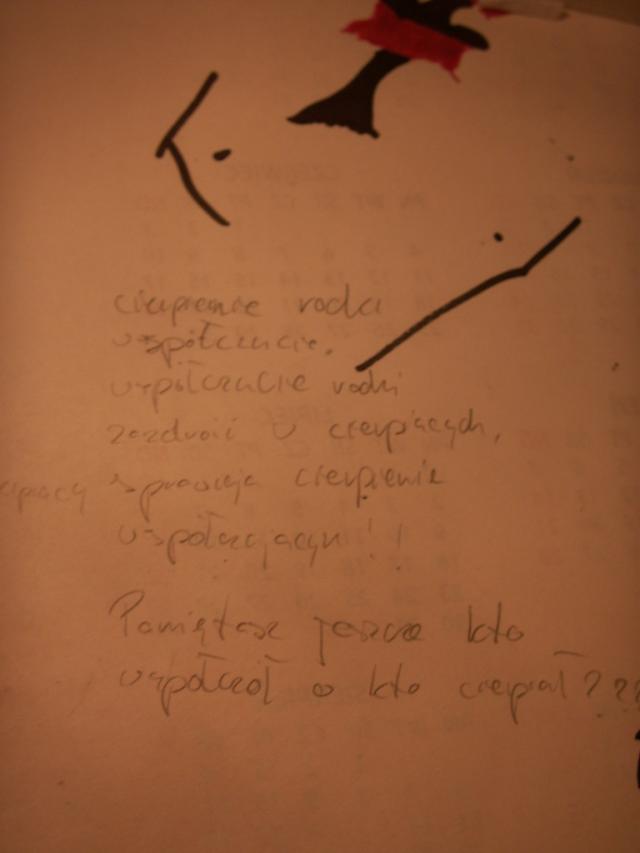 CZERWIEC
cierpienie rodzi
współczucie.
współczucie rodzi
zazdrość u cierpiących,
sprawiają cierpienie
współczującym!!
Pamiętasz jeszcze kto
współczół a kto cierpiał???